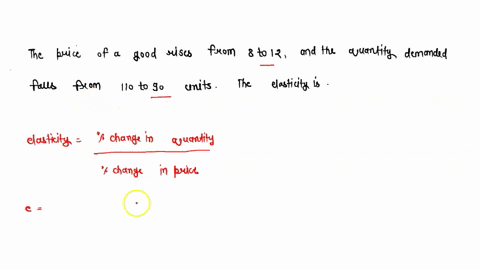 The price of a good rises from 8 to 12, and the quantity demanded
falls from 110 to 90 units. The elasticity is.
elasticity = % change in quantity
% change in price
e =